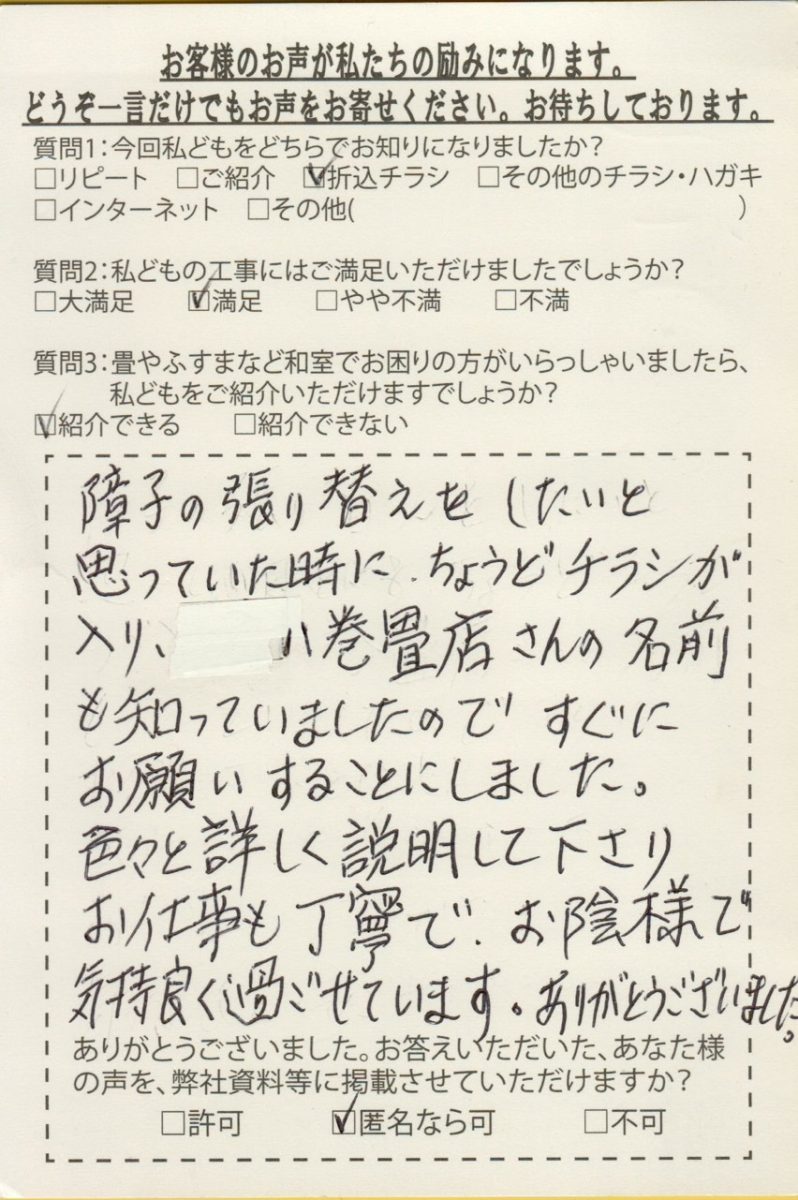 お客様のお声が私たちの励みになります。
どうぞ一言だけでもお声をお寄せください。お待ちしております。
質問1:今回私どもをどちらでお知りになりましたか?
□リピート □ご紹介 ☑折込チラシ □その他のチラシ・ハガキ
□インターネット □その他( )
質問2:私どもの工事にはご満足いただけましたでしょうか?
□大満足 ☑満足 □やや不満 □不満
質問3:畳やふすまなど和室でお困りの方がいらっしゃいましたら、
私どもをご紹介いただけますでしょうか?
☑紹介できる □紹介できない
障子の張り替えをしたいと
思っていた時に、ちょうどチラシが
入り、八巻畳店さんの名前
も知っていましたのですぐに
お願いすることにしました。
色々と詳しく説明して下さり
お仕事も丁寧で、お陰様で
気持良く過ごせています。ありがとうございました。
ありがとうございました。お答えいただいた、あなた様
の声を、弊社資料等に掲載させていただけますか?
□許可 ☑匿名なら可 □不可